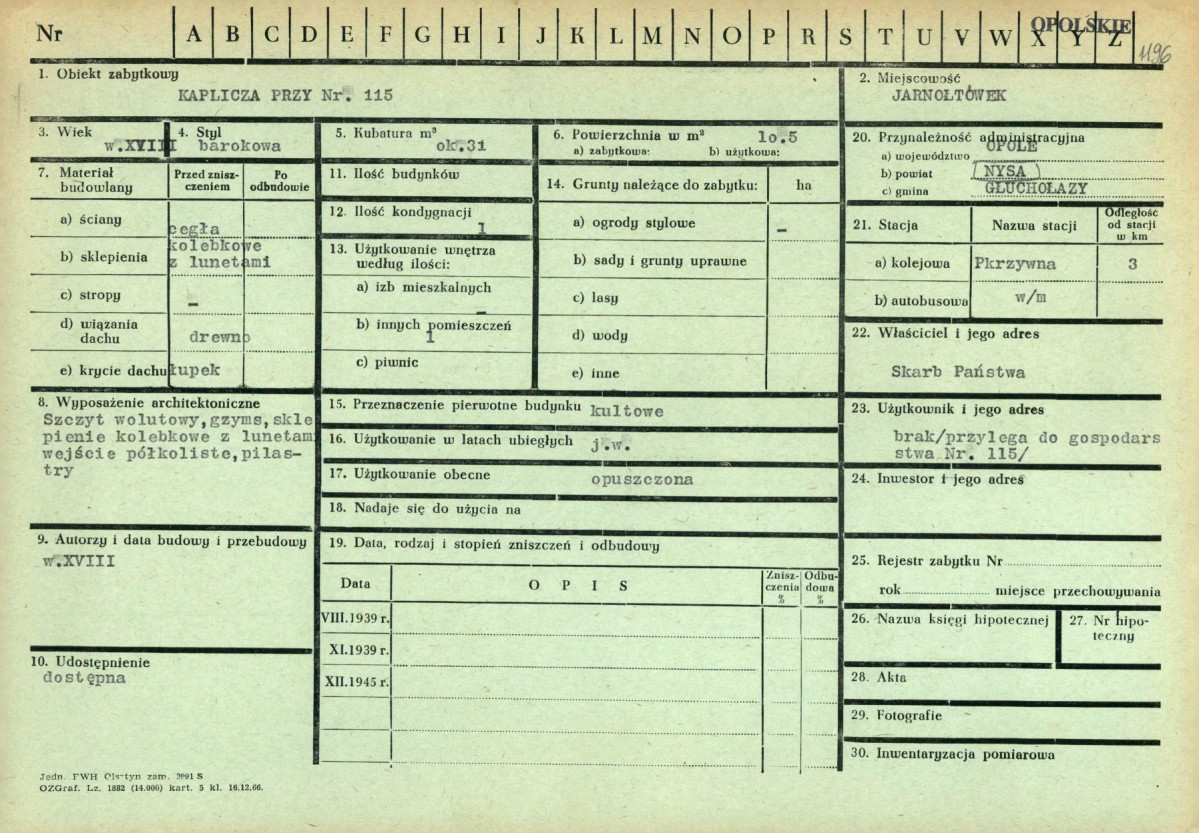 Nr A B C D E F G H I J K L M N O P R S T U V W X Y Z
OPOLSKIE
1196
1. Obiekt zabytkowy
KAPLICZA PRZY Nr. 115
2. Miejscowość
JARNOŁTÓWEK
3. Wiek
w.XVIII
4. Styl
barokowa
5. Kubatura m³
ok.31
6. Powierzchnia w m²
10.5
a) zabytkowa: b) użytkowa:
7. Materiał budowlany
Przed znisz-
czeniem
Po
odbudowie
a) ściany
cegła
b) sklepienia
kolebkowe
z lunetami
c) stropy
–
d) wiązania
dachu
drewno
e) krycie dachu
łupek
8. Wyposażenie architektoniczne
Szczyt wolutowy,gzyms,skle
pienie kolebkowe z lunetam
wejście półkoliste,pilas-
try
9. Autorzy i data budowy i przebudowy
w.XVIII
10. Udostępnienie
dostępna
11. Ilość budynków
12. Ilość kondygnacji
1
13. Użytkowanie wnętrza
według ilości:
a) izb mieszkalnych
–
b) innych pomieszczeń
1
c) piwnic
14. Grunty należące do zabytku: ha
a) ogrody stylowe
–
b) sady i grunty uprawne
c) lasy
d) wody
e) inne
15. Przeznaczenie pierwotne budynku kultowe
16. Użytkowanie w latach ubiegłych j.w.
17. Użytkowanie obecne opuszczona
18. Nadaje się do użycia na
19. Data, rodzaj i stopień zniszczeń i odbudowy
Data
OPIS
Znisz-
czenia
%
Odbu-
dowa
%
VIII.1939 r.
XI.1939 r.
XII.1945 r.
20. Przynależność administracyjna
a) województwo OPOLE
b) powiat NYSA
c) gmina GŁUCHOŁAZY
21. Stacja
Nazwa stacji
Odległość
od stacji
w km
a) kolejowa Pkrzywna 3
b) autobusowa w/m
22. Właściciel i jego adres
Skarb Państwa
23. Użytkownik i jego adres
brak/przylega do gospodars
stwa Nr. 115/
24. Inwestor i jego adres
25. Rejestr zabytku Nr
rok miejsce przechowywania
26. Nazwa księgi hipotecznej
27. Nr hipo-
teczny
28. Akta
29. Fotografie
30. Inwentaryzacja pomiarowa
Jedn. PWH Olsztyn zam. 3991 S
OZGraf. Lz. 1882 (14.000) kart. 5 kl. 16.12.66.